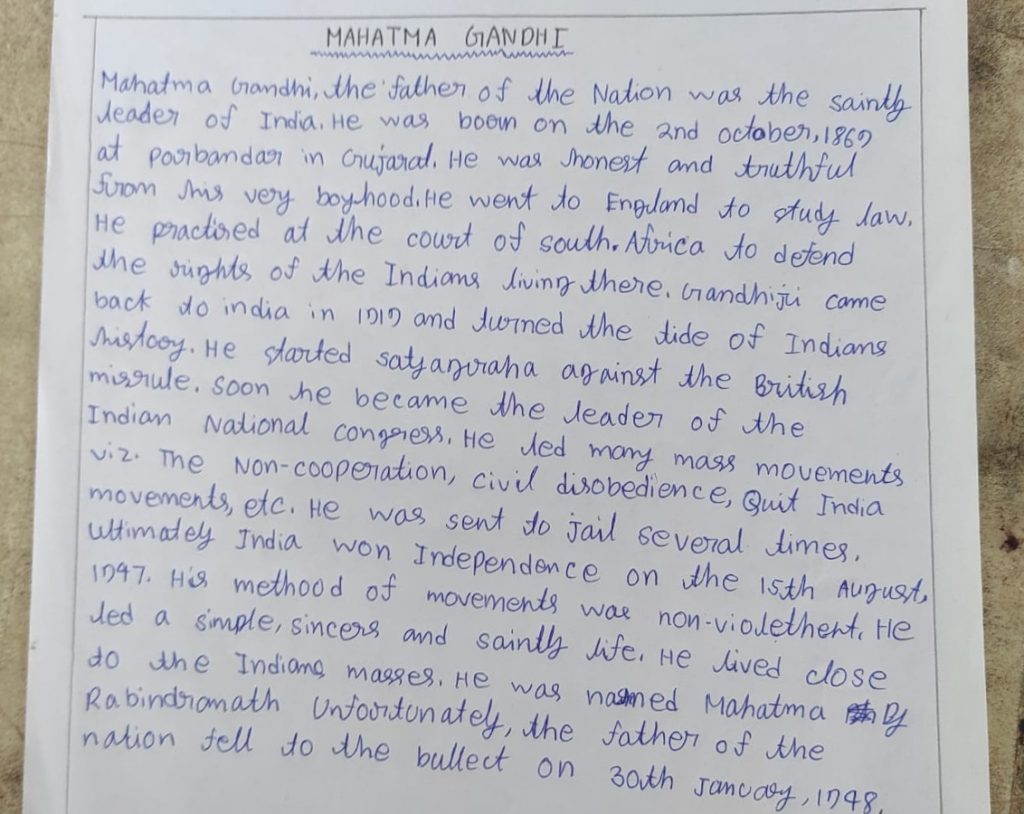 MAHATMA GANDHI
Mahatma Gandhi, the father of the Nation was the saintly
leader of India. He was boon on the 2nd october, 1869
at porbandar in Gujarat. He was honest and truthful
from his very boyhood. He went to England to study law.
He practised at the court of south. Africa to defend
the rights of the Indians living there. Gandhiji came
back to india in 1919 and turned the tide of Indians
histooy. He started satyagraha against the British
misrule. soon he became the leader of the
Indian National congress. He led many mass movements
viz. The Non-cooperation, civil disobedience, Quit India
movements, etc. He was sent to jail several times.
ultimately India won Independence on the 15th August,
1947. His methood of movements was non-violethent. He
led a simple, sincers and saintly life. He lived close
to the Indians masses. He was named Mahatma By
Rabindranath Unfortunately, the father of the
nation fell to the bullect on 30th January, 1948.